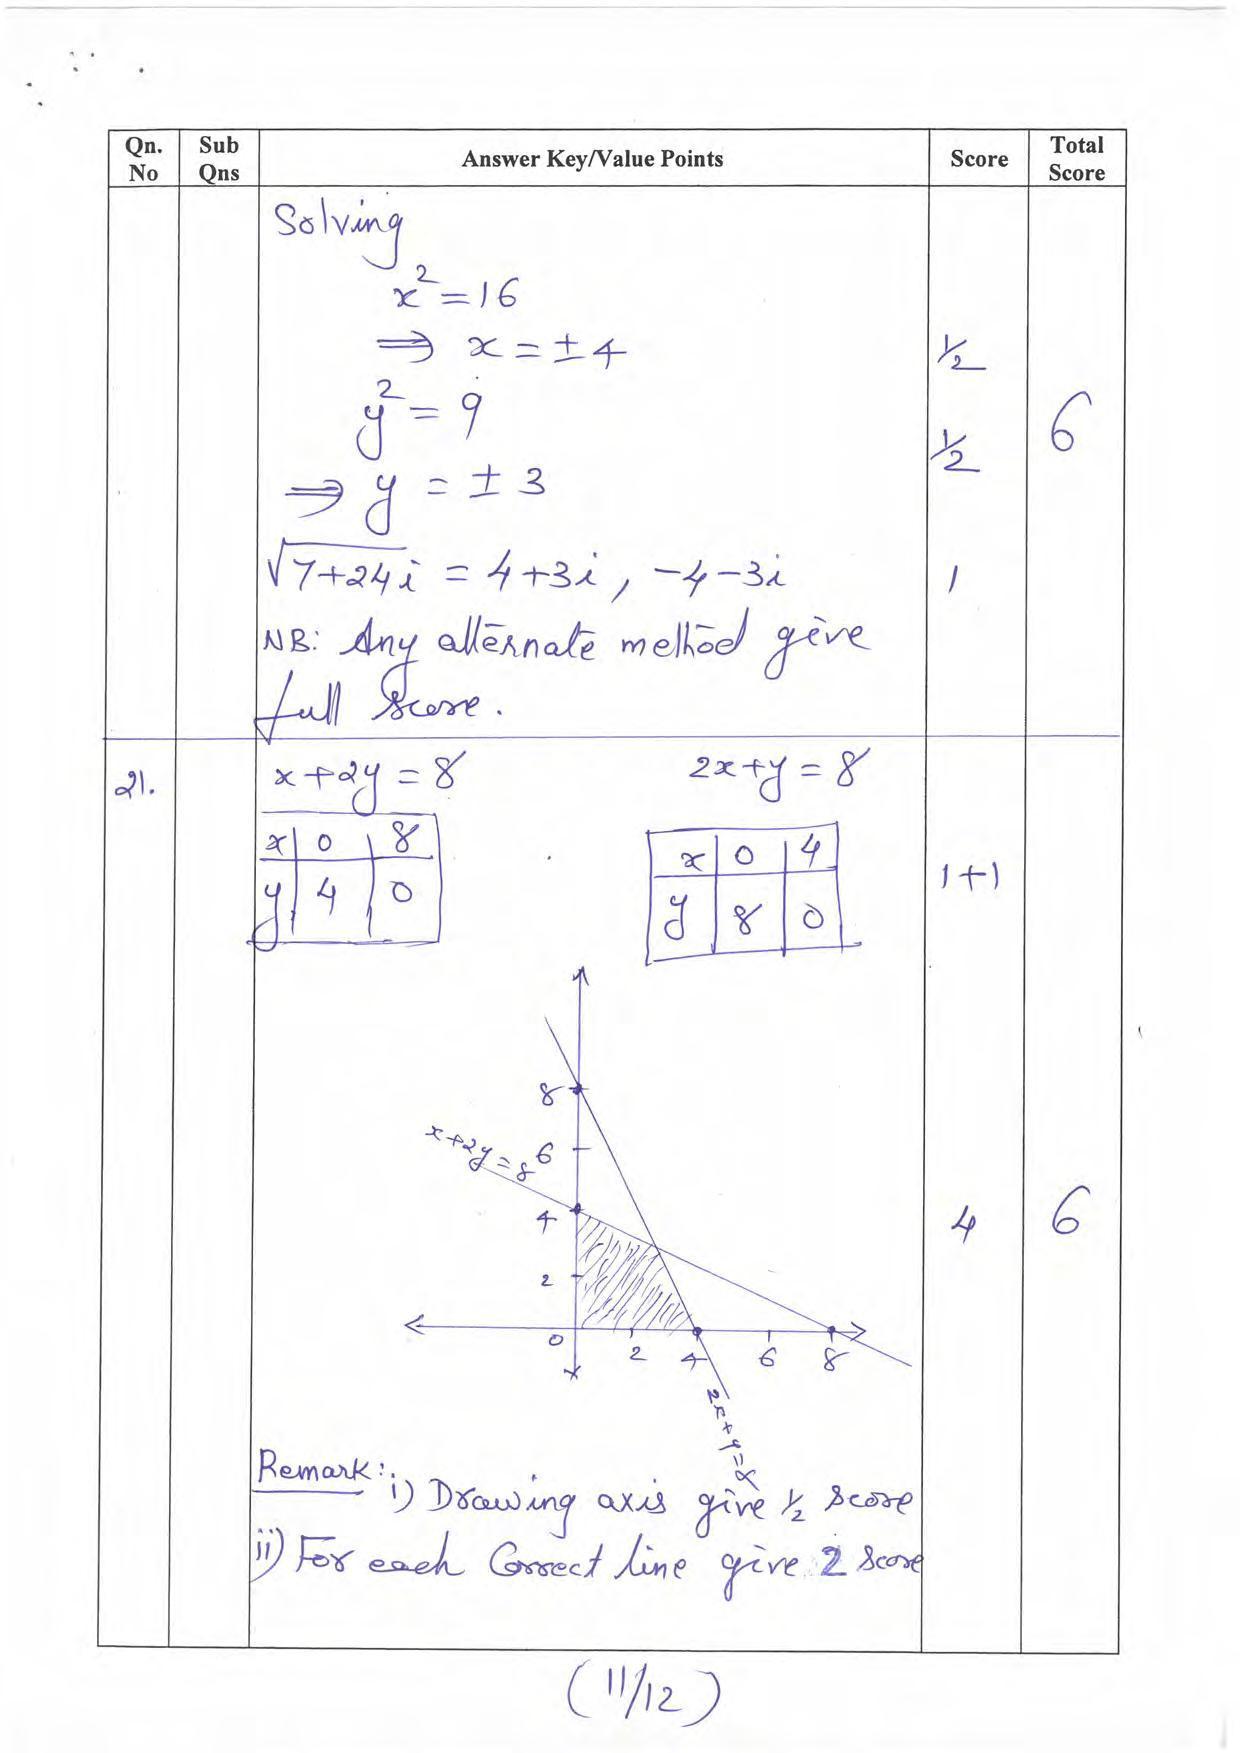 Qn. No | Sub Qns | Answer Key/Value Points | Score | Total Score
Solving
x² = 16
⇒ x = ±4 | ½
y² = 9 | 6
⇒ y = ±3 | ½
√7+24i = 4+3i, -4-3i | 1
NB: Any alternate method give
full score.
21. | x+2y = 8 | 2x+y = 8
x | 0 | 8 | x | 0 | 4 | 1+1
y | 4 | 0 | y | 8 | 0
8
x+2y=8 6
4 | 4 | 6
2
0 2 4 6 8
2x+y=8
Remark: i) Drawing axis give ½ score
ii) For each Correct line give 2 score
(11/12)